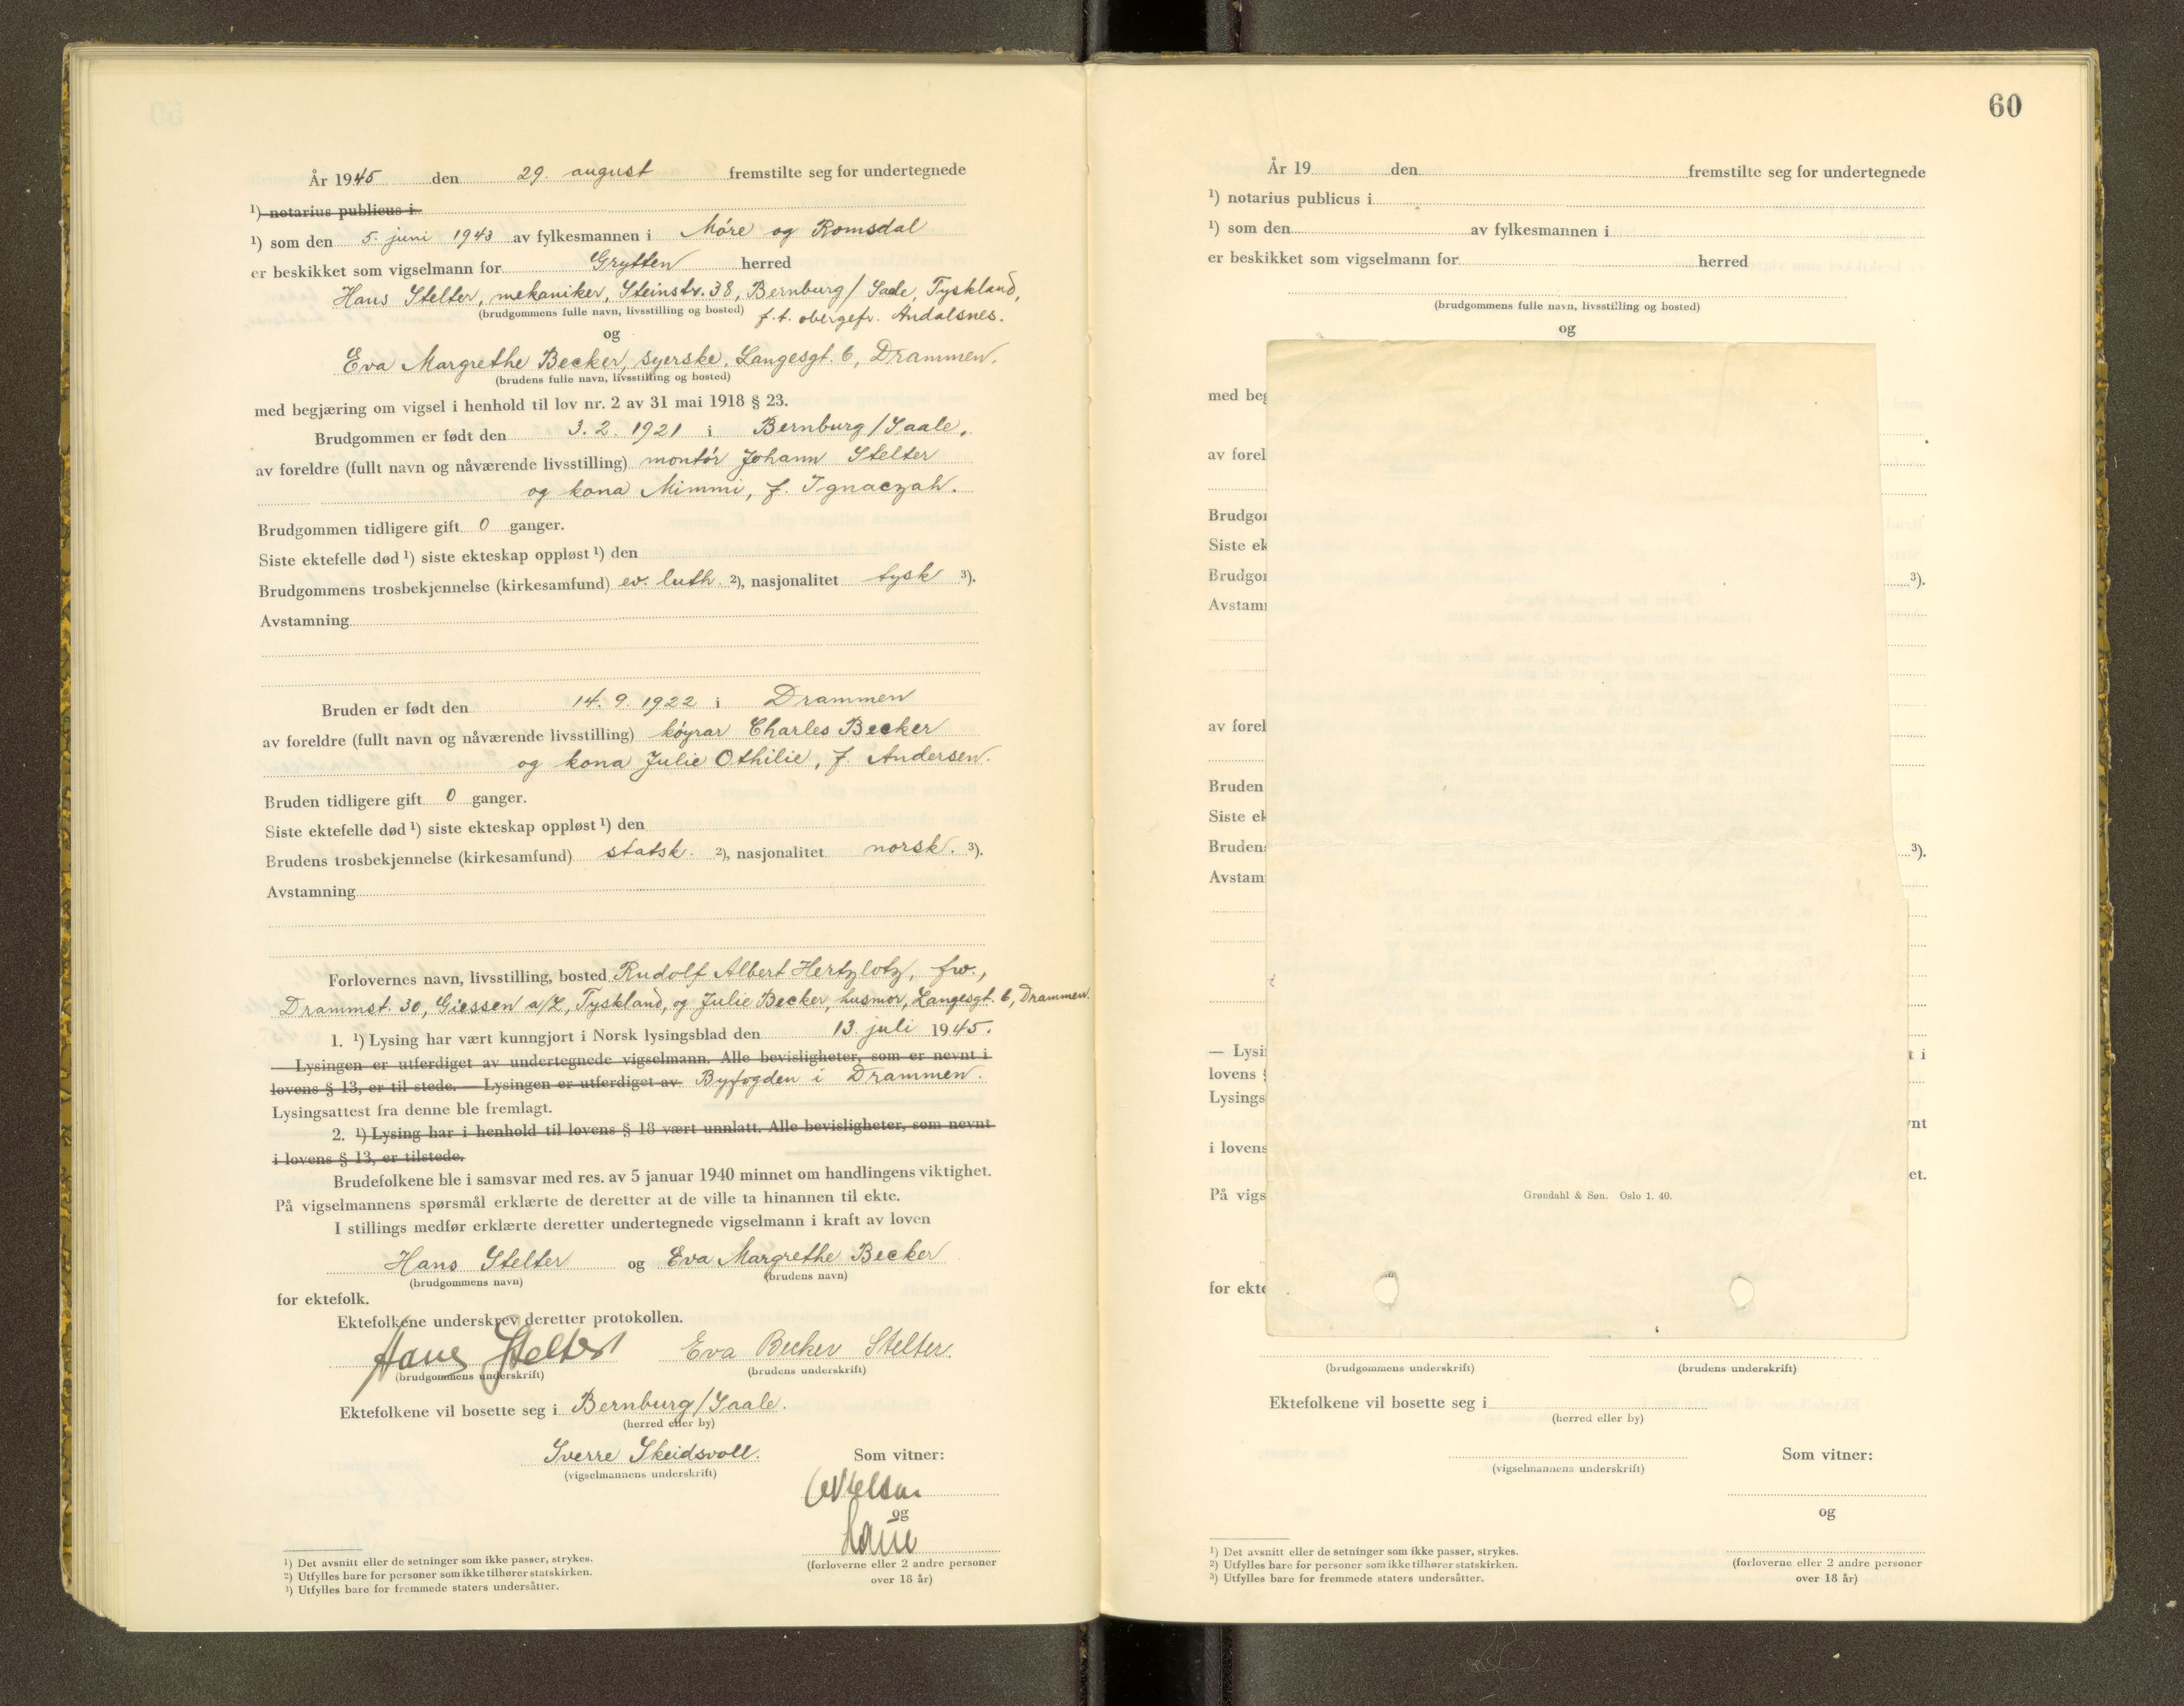 År 1945 den 29. august fremstilte seg for undertegnede
¹) notarius publicus i
¹) som den 5. juni 1943 av fylkesmannen i Møre og Romsdal
er beskikket som vigselmann for Grytten herred
Hans Stelter, mekaniker, Steinstr. 38, Bernburg/Saale, Tyskland,
(brudgommens fulle navn, livsstilling og bosted) f.t. obergefr. Åndalsnes.
og
Eva Margrethe Becker, syerske, Langesgt. 6, Drammen.
(brudens fulle navn, livsstilling og bosted)
med begjæring om vigsel i henhold til lov nr. 2 av 31 mai 1918 § 23.
Brudgommen er født den 3. 2. 1921 i Bernburg/Saale,
av foreldre (fullt navn og nåværende livsstilling) montør Johann Stelter
og kona Mimmi, f. Ignaczah.
Brudgommen tidligere gift 0 ganger.
Siste ektefelle død ¹) siste ekteskap oppløst ¹) den
Brudgommens trosbekjennelse (kirkesamfund) ev. luth. ²), nasjonalitet tysk ³).
Avstamning
Bruden er født den 14. 9. 1922 i Drammen
av foreldre (fullt navn og nåværende livsstilling) køyrar Charles Becker
og kona Julie Othilie, f. Andersen.
Bruden tidligere gift 0 ganger.
Siste ektefelle død ¹) siste ekteskap oppløst ¹) den
Brudens trosbekjennelse (kirkesamfund) statsk. ²), nasjonalitet norsk. ³).
Avstamning
Forlovernes navn, livsstilling, bosted Rudolf Albert Hertzlotz, fw.,
Drammst. 30, Giessen a/L, Tyskland, og Julie Becker, husmor, Langesgt. 6, Drammen.
1. ¹) Lysing har vært kunngjort i Norsk lysingsblad den 13. juli 1945.
— Lysingen er utferdiget av undertegnede vigselmann. Alle bevisligheter, som er nevnt i
lovens § 13, er til stede. — Lysingen er utferdiget av Byfogden i Drammen.
Lysingsattest fra denne ble fremlagt.
2. ¹) Lysing har i henhold til lovens § 18 vært unnlatt. Alle bevisligheter, som nevnt
i lovens § 13, er tilstede.
Brudefolkene ble i samsvar med res. av 5 januar 1940 minnet om handlingens viktighet.
På vigselmannens spørsmål erklærte de deretter at de ville ta hinannen til ekte.
I stillings medfør erklærte deretter undertegnede vigselmann i kraft av loven
Hans Stelter og Eva Margrethe Becker
(brudgommens navn) (brudens navn)
for ektefolk.
Ektefolkene underskrev deretter protokollen.
Hans Stelter Eva Becker Stelter.
(brudgommens underskrift) (brudens underskrift)
Ektefolkene vil bosette seg i Bernburg/Saale.
(herred eller by)
Sverre Skeidsvoll. Som vitner:
(vigselmannens underskrift)
og
(forloverne eller 2 andre personer
over 18 år)
¹) Det avsnitt eller de setninger som ikke passer, strykes.
²) Utfylles bare for personer som ikke tilhører statskirken.
³) Utfylles bare for fremmede staters undersåtter.
60
År 19 den fremstilte seg for undertegnede
¹) notarius publicus i
¹) som den av fylkesmannen i
er beskikket som vigselmann for herred
(brudgommens fulle navn, livsstilling og bosted)
og
med beg
av forel
Brudgo
Siste ek
Brudgo ³).
Avstam
av forel
Bruden
Siste ek
Brudens ³).
Avstam
— Lysi t i
lovens §
Lysings
nt
i lovens
et.
På vigs
Grøndahl & Søn. Oslo 1. 40.
for ekte
(brudgommens underskrift) (brudens underskrift)
Ektefolkene vil bosette seg i
(herred eller by)
Som vitner:
(vigselmannens underskrift)
og
(forloverne eller 2 andre personer
over 18 år)
¹) Det avsnitt eller de setninger som ikke passer, strykes.
²) Utfylles bare for personer som ikke tilhører statskirken.
³) Utfylles bare for fremmede staters undersåtter.